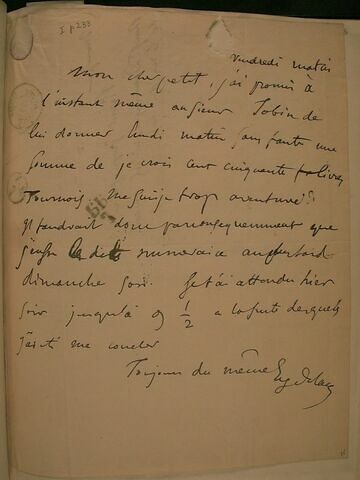 I p 233
Vendredi matin
Mon cher petit, j'ai promis à
l'instant même au sieur Tobin de
lui donner lundi matin sans faute une
somme de je crois cent cinquante livres
Tournois. Me suis je trop aventuré?
Il faudrait donc par conséquemment que
j'eusse le dit numeraire au plus tard
dimanche soir. Je t'ai attendu hier
soir jusqu'à 9 1/2 à la suite desquels
j'ai été me coucher
Toujours du même Eug Delac